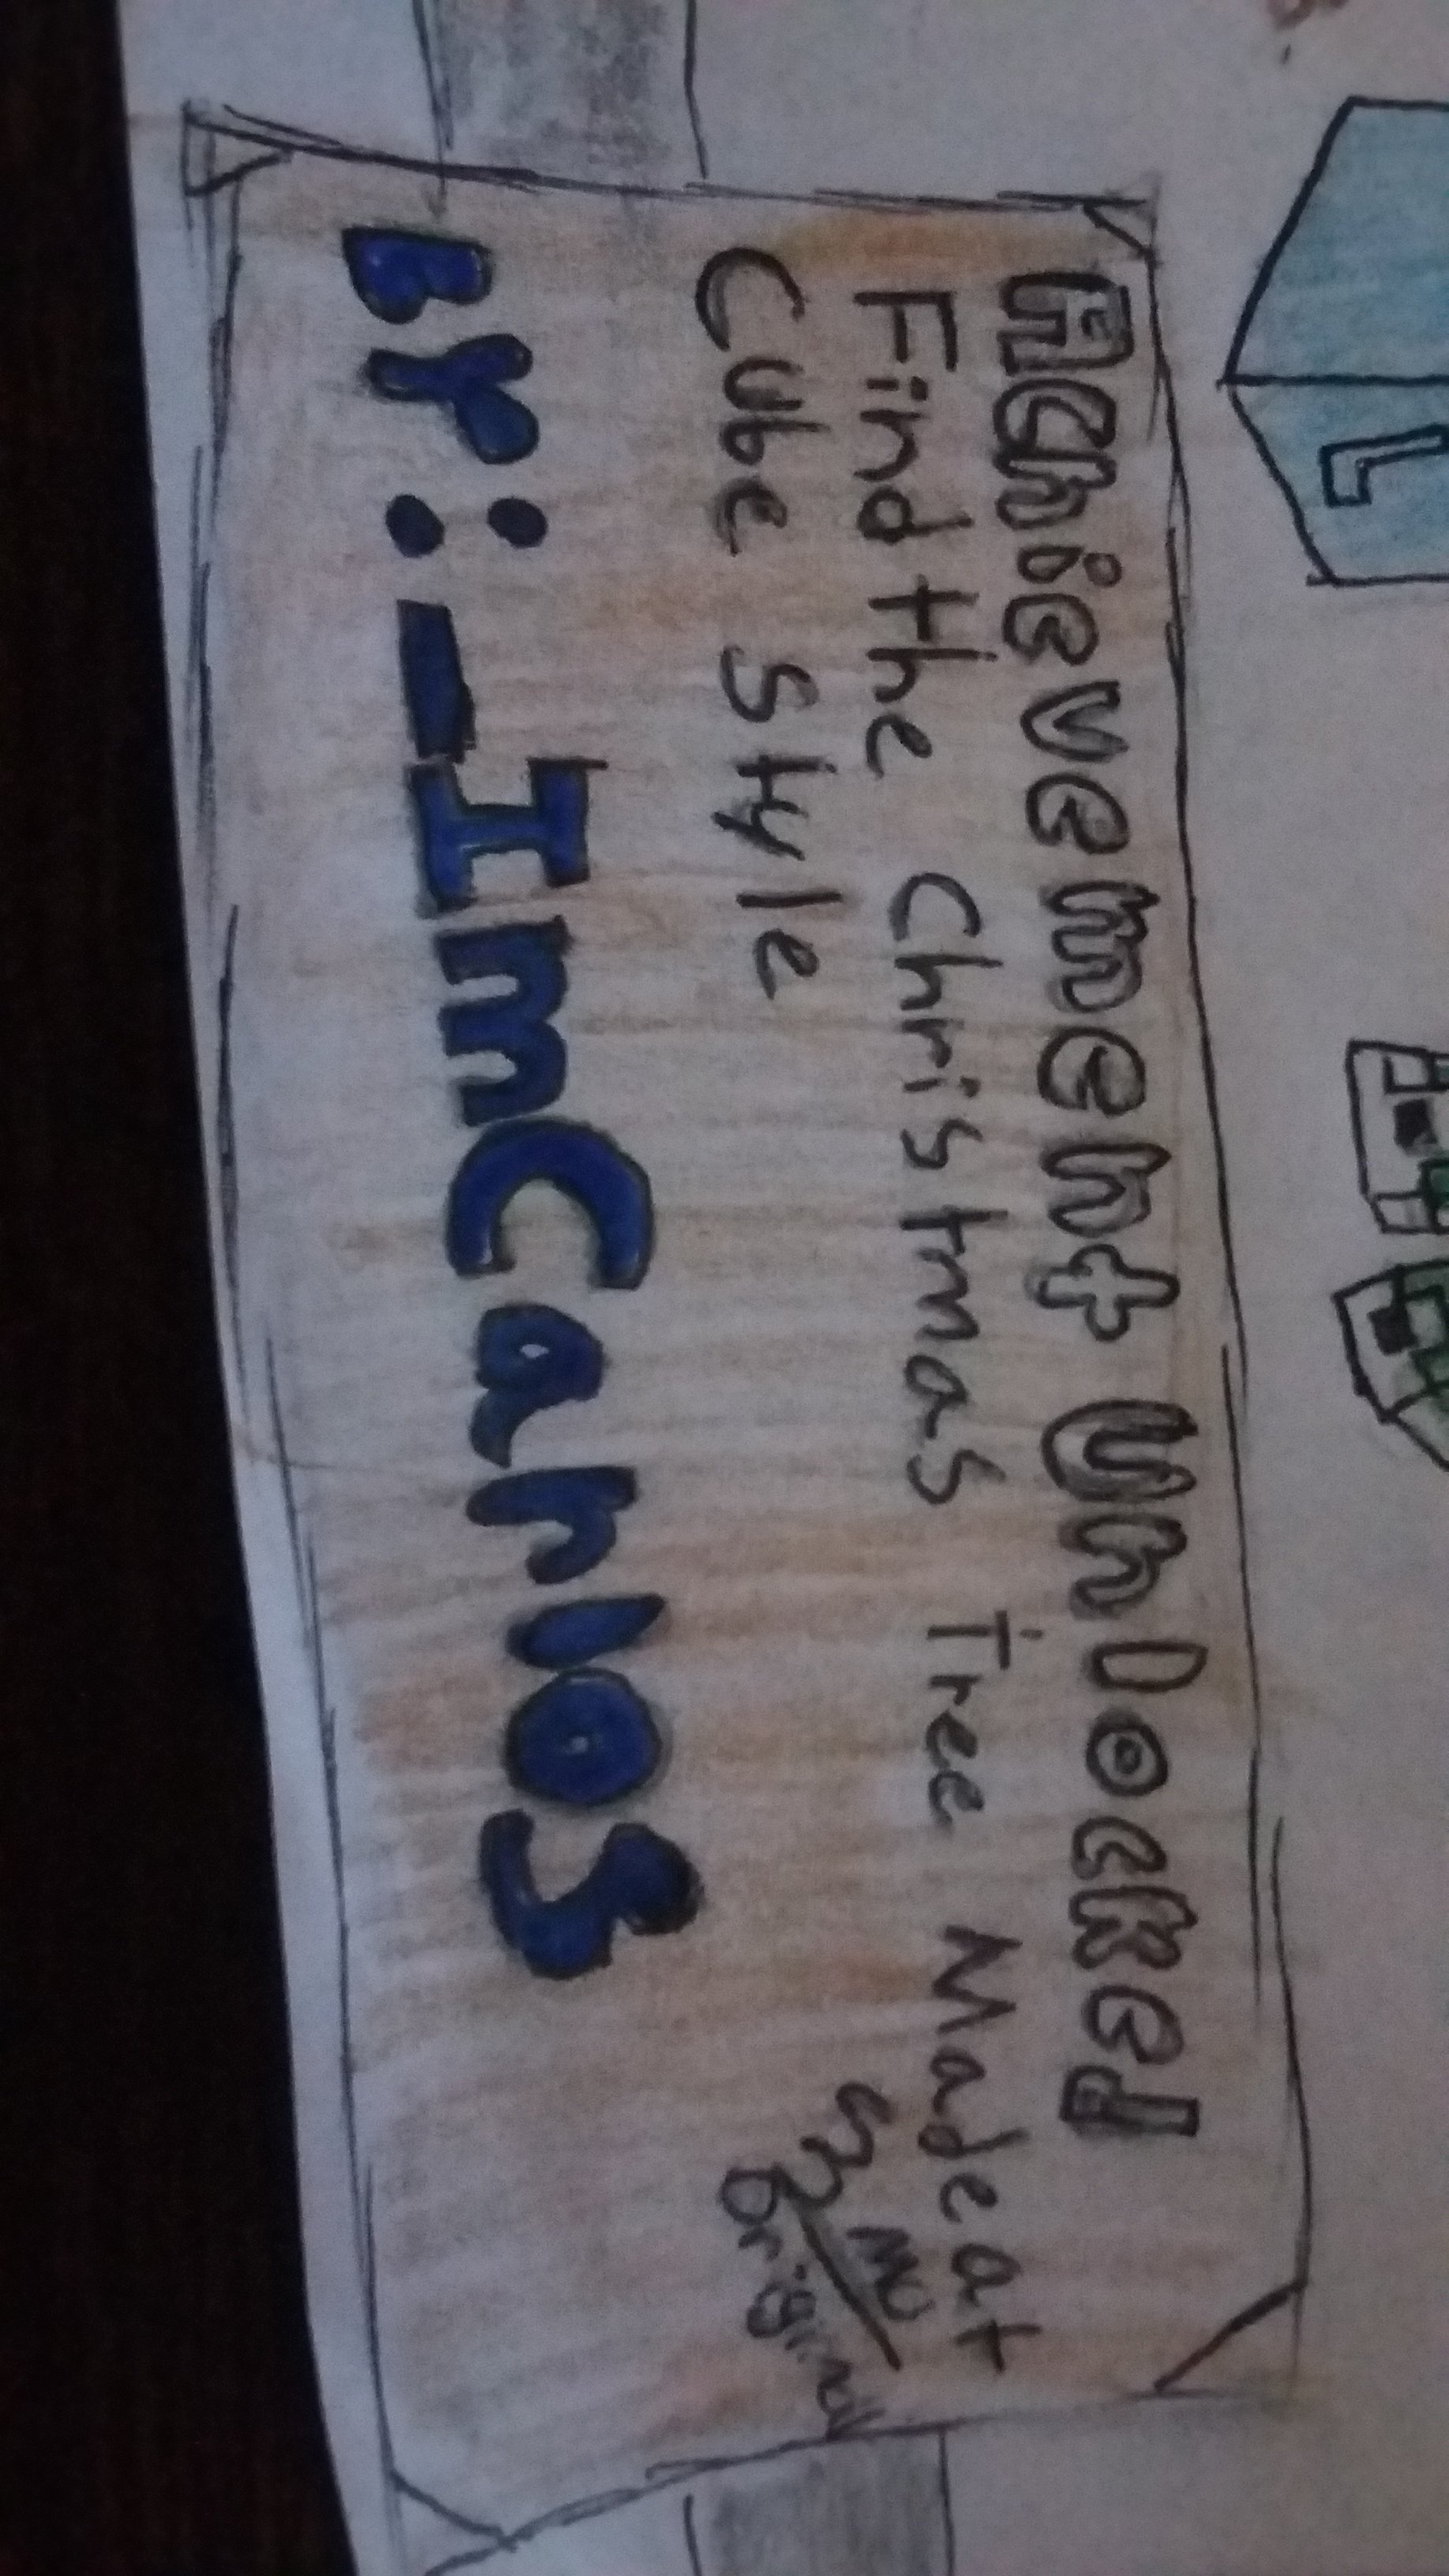 Achievement Unlocked
Find the Christmas Tree Made at
Cube Style
Original
By:_ImCarloS